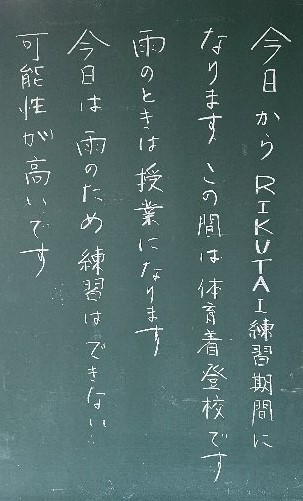 今日からRIKUTAI練習期間に
なります この間は体育着登校です
雨のときは授業になります
今日は雨のため練習はできない
可能性が高いです